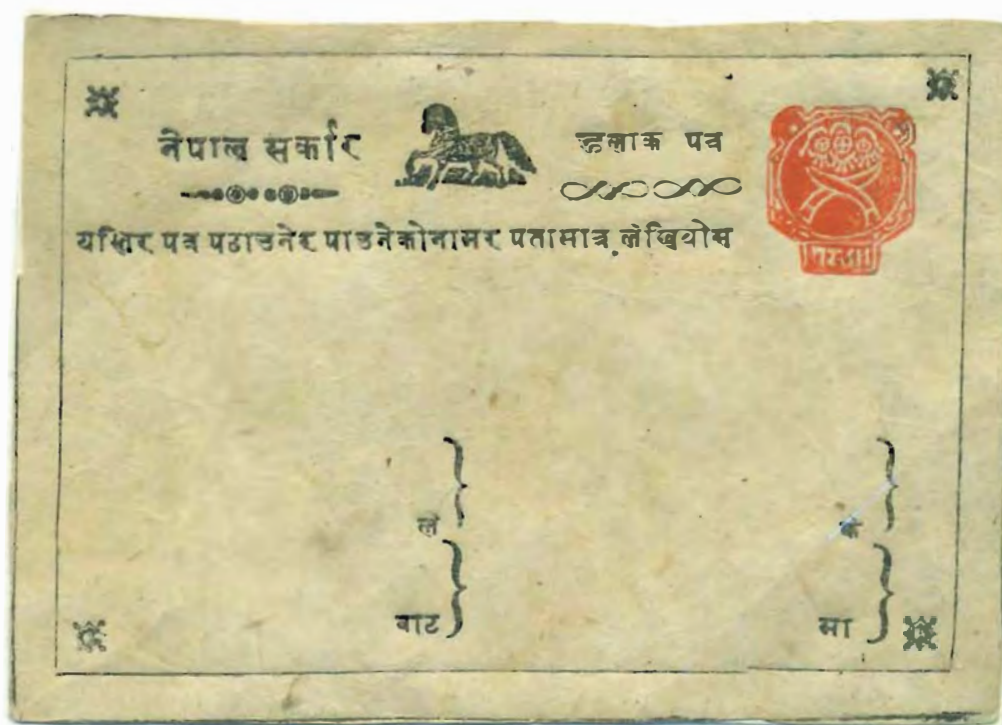 नेपाल सर्कार
हुलाक पत्र
यस्तिर पत्र पठाउनेर पाउनेकोनामर पतामात्र लेखियोस
ले
के
बाट
मा